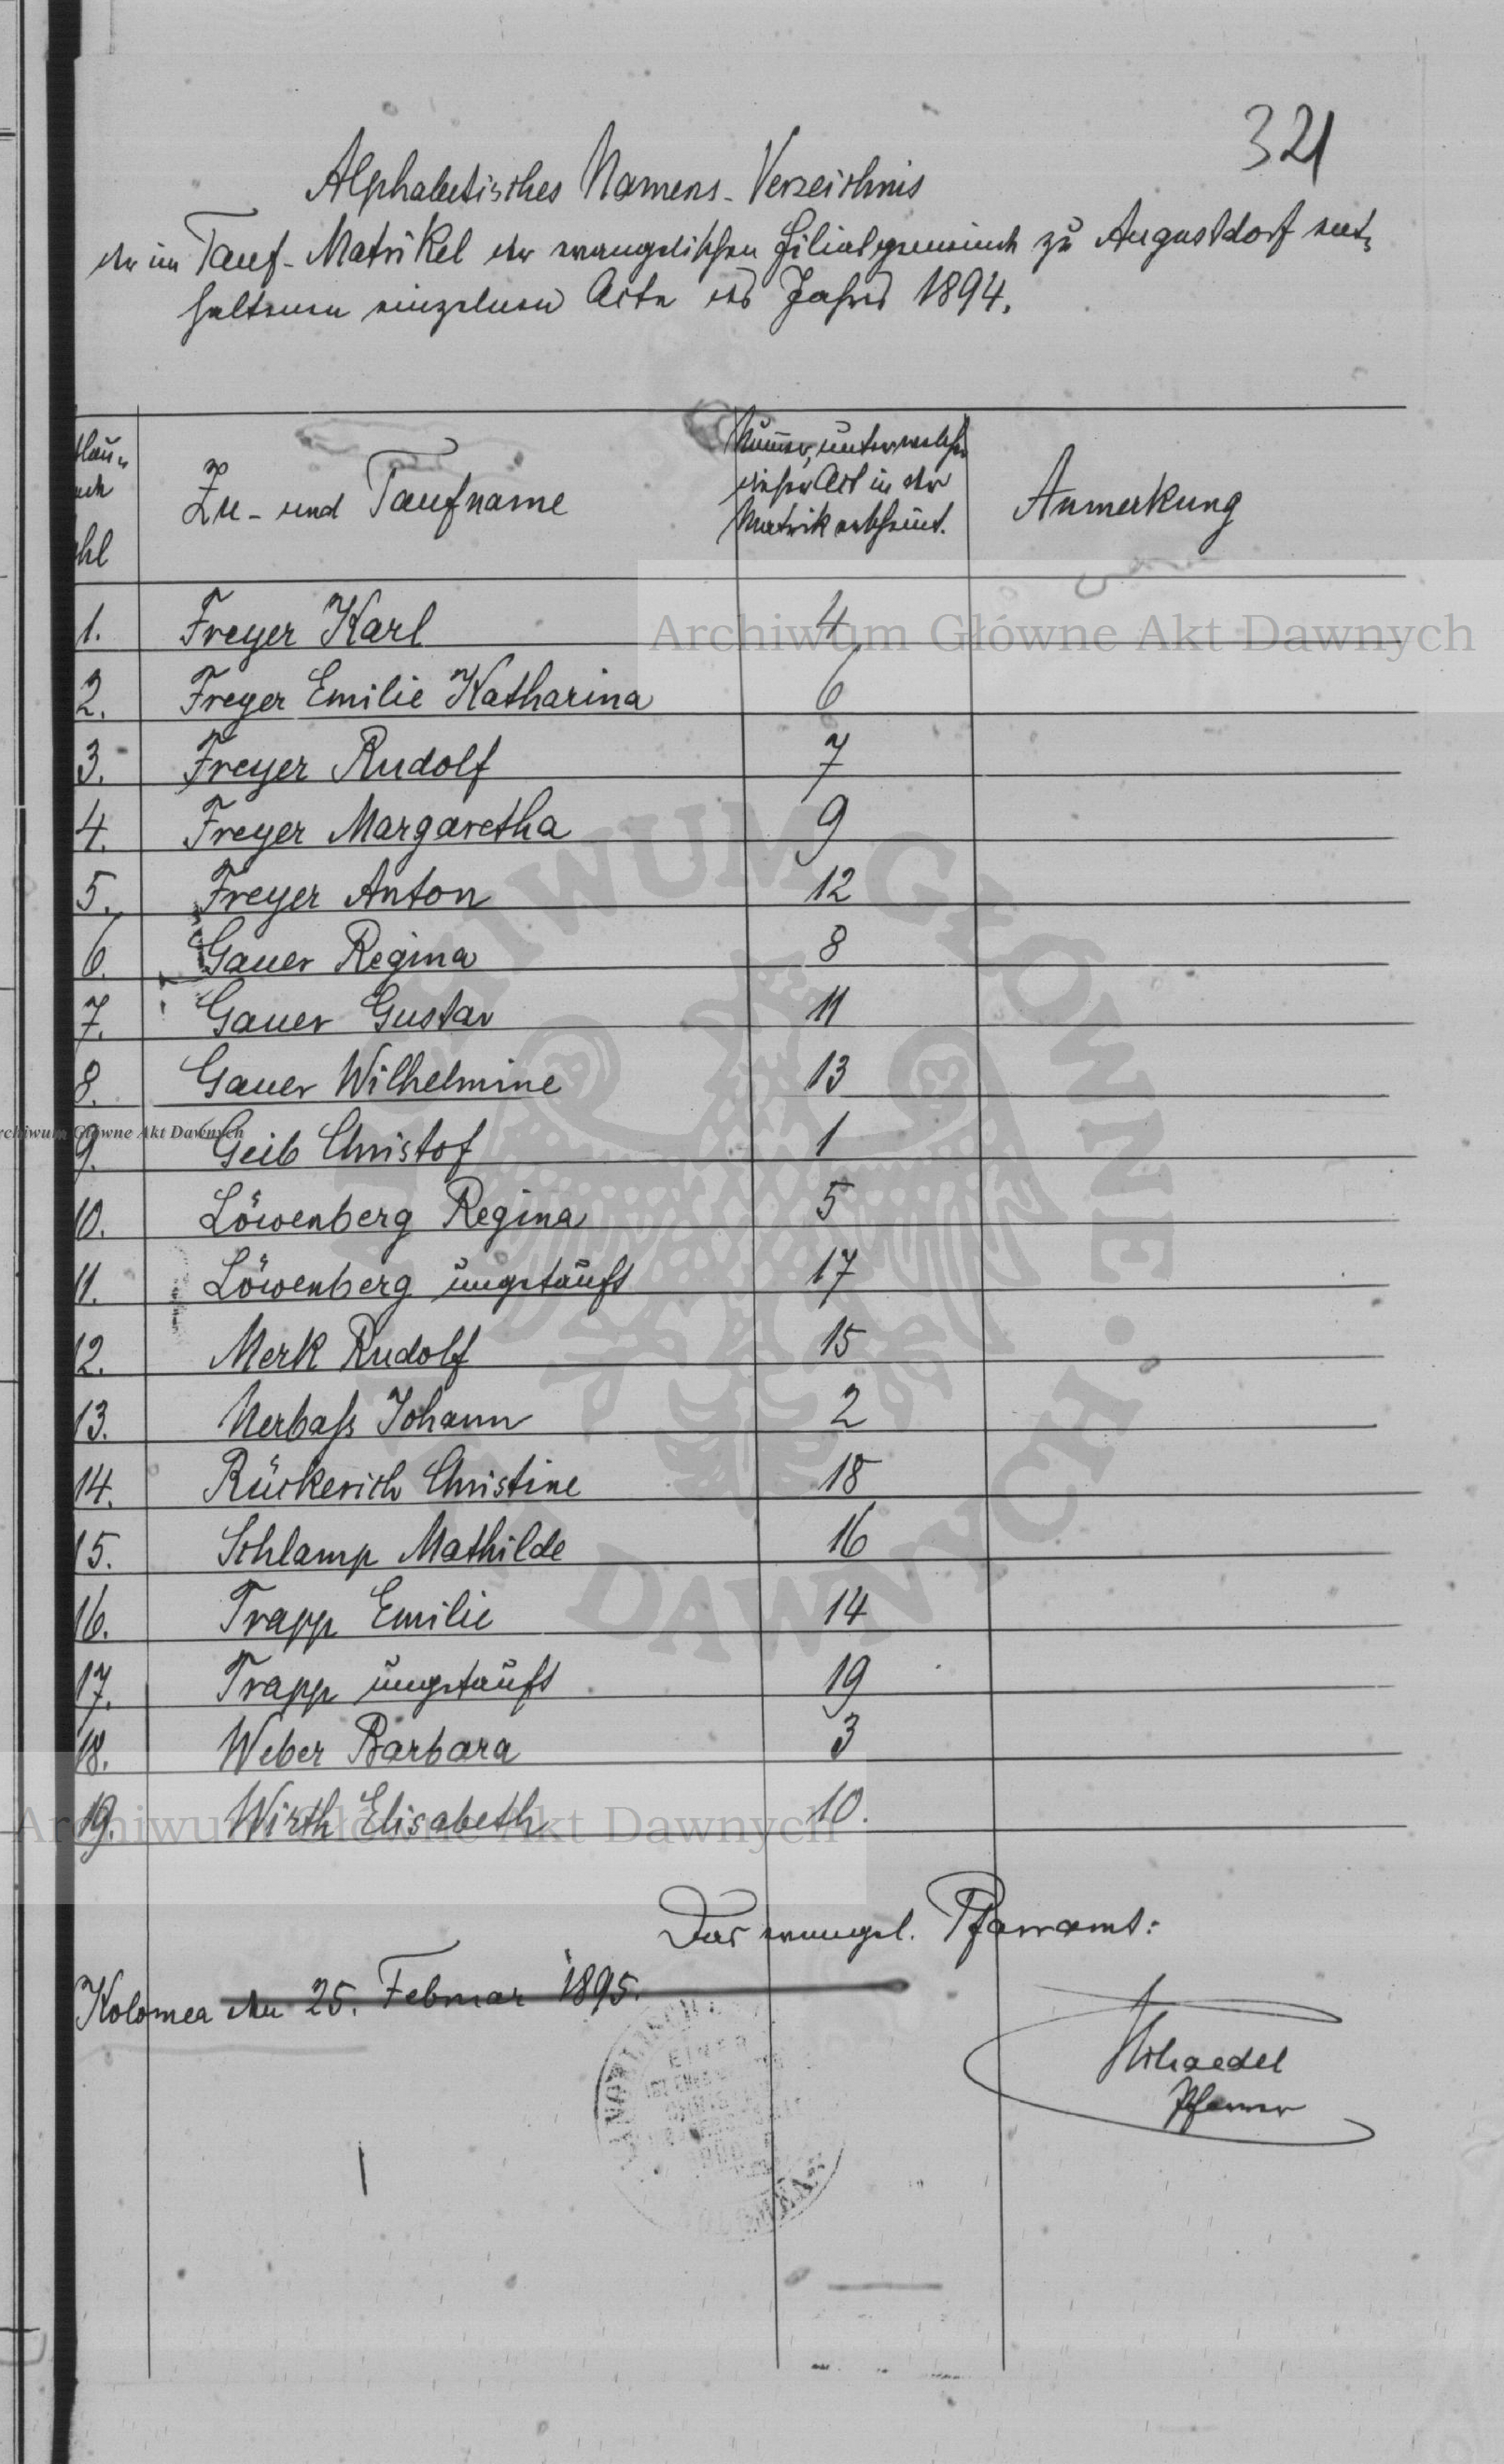 321
Alphabetisches Namens-Verzeichnis
der im Tauf-Matrikel der evangelischen Filialgemeinde zu Augustdorf ent-
haltenen einzelnen Acte des Jahres 1894.
Zu- und Taufname
Nummer, unter welcher
dieser Act in der
Matrik erscheint.
Anmerkung
hl
1. Freyer Karl 4
2. Freyer Emilie Katharina 6
3. Freyer Rudolf 7
4. Freyer Margaretha 9
5. Freyer Anton 12
6. Gauer Regina 8
7. Gauer Gustav 11
8. Gauer Wilhelmine 13
9. Geib Christof 1
10. Löwenberg Regina 5
11. Löwenberg ungetauft 17
12. Merk Rudolf 15
13. Nerbaß Johann 2
14. Rückerich Christine 18
15. Schlamp Mathilde 16
16. Trapp Emilie 14
17. Trapp ungetauft 19
18. Weber Barbara 3
19. Wirth Elisabeth 10.
Das evangel. Pfarramt:
Kolomea den 25. Februar 1895.
Pfarrer
Archiwum Główne Akt Dawnych
Archiwum Główne Akt Dawnych
Archiwum Główne Akt Dawnych
ARCHIWUM GŁÓWNE AKT DAWNYCH